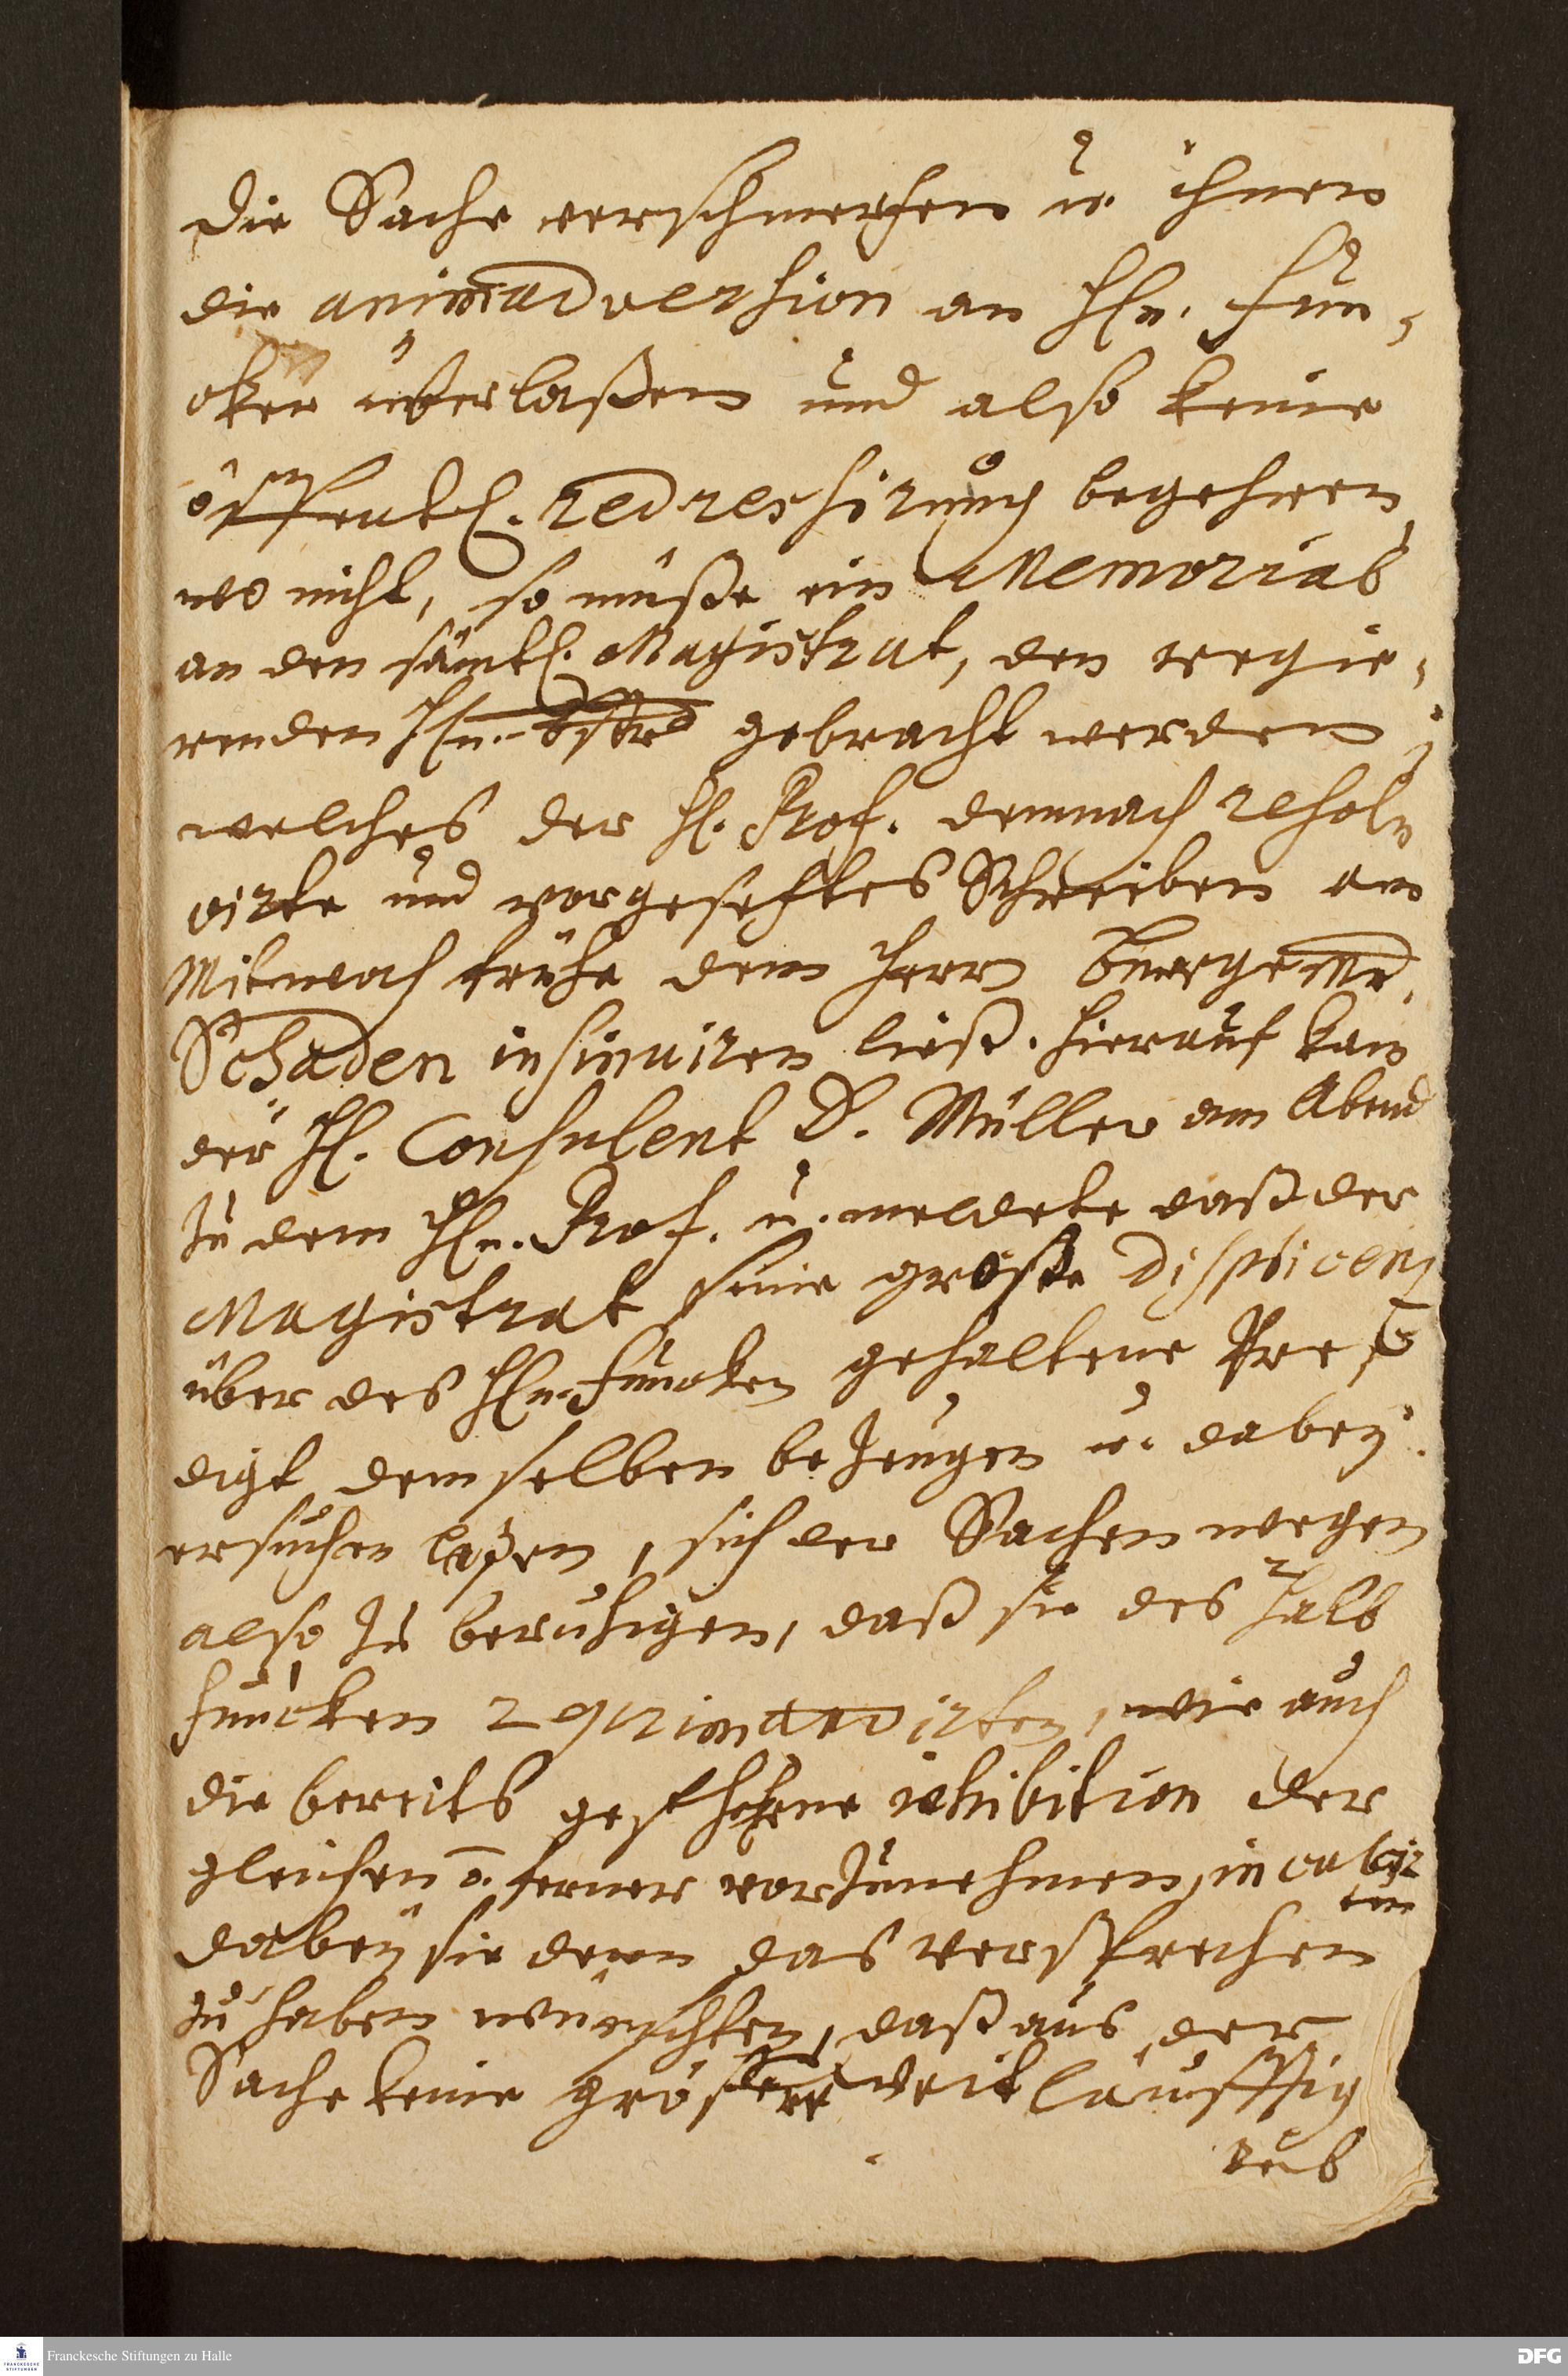 die Sache verschmertzen u. ihnen
die animadversion an Hn. Fun-
cken überlaßen und also keine
öffentl. redreshirung begehren,
wo nicht, so müße ein Memorial
an den sämtl. Magistrat, den regie-
renden Hn. gebracht werden;
welches der H. Prof. demnach resol-
virte und vorgesetztes Schreiben am
Mitwoch frühe dem Herrn Burgemr.
Schaden insinuiren ließ. Hierauf kam
der H. Consulent D. Müller am Abend
zu dem Hn. Prof. u. meldete daß der
Magistrat seine große displicenz
über des Hn. Funcken gehaltene Pre-
digt demselben bezeugen u. dabey
ersuchen laßen, sich der Sachen wegen
also zu beruhigen, daß sie deshalb
Funcken reprimandirten, wie auch
die bereits geschehene inhibition der
gleichen ferner vorzunehmen,
ten
dabey sie denn das versprechen
zu haben wünschten, daß aus der
Sache keine größere Weitläufftig